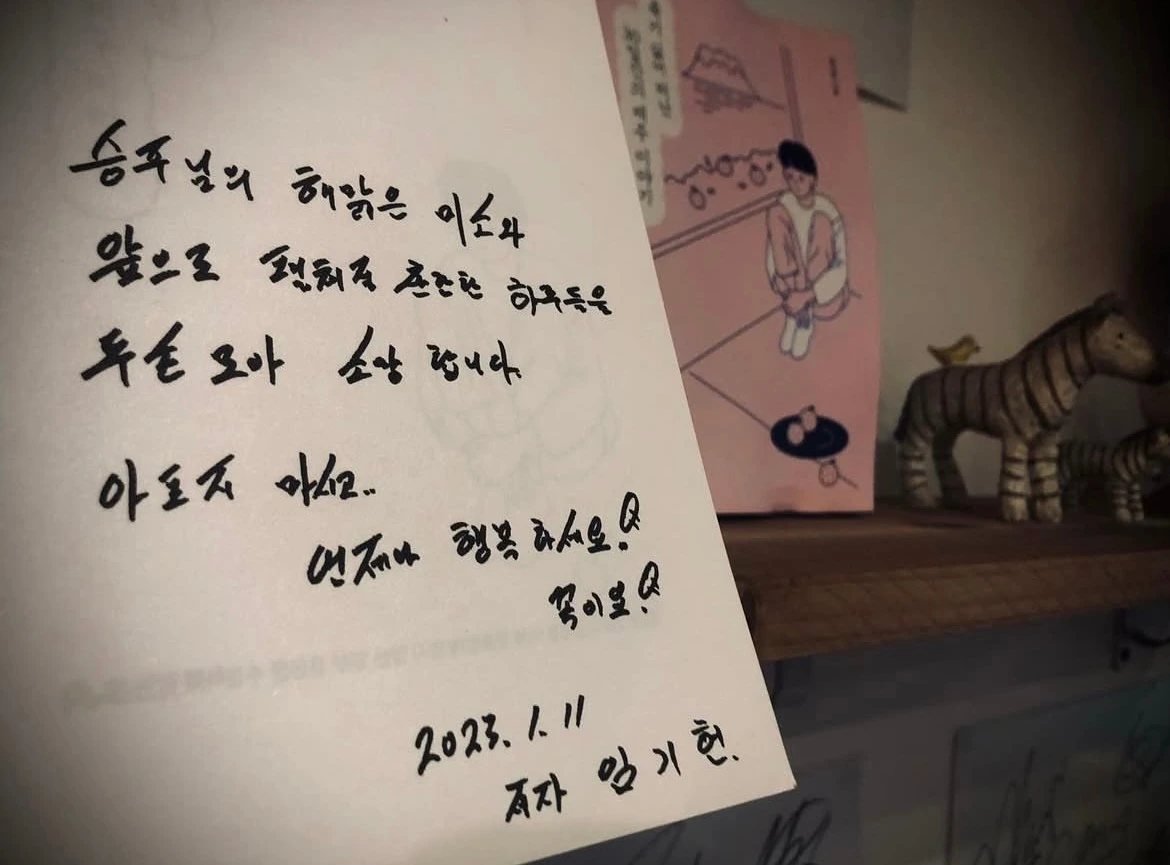 승주님의 해맑은 미소와
앞으로 펼쳐질 찬란한 하루들을
두 손 모아 소망 합니다.
아프지 마시고..
언제나 행복하세요!
꼭이요!
2023. 1. 11
저자 임기헌.
제주 이야기